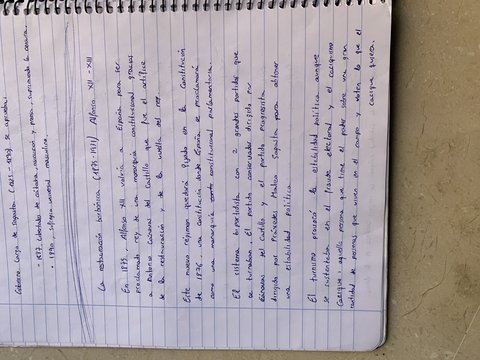 Gobierno largo de Sagasta (1885-1890) se aprueba:
- 1887. Libertades de cátedra, asociación y prensa, suprimiendo la censura.
- 1890. sufragio universal masculino.
La restauración borbónica (1875-1931) Alfonso XII - XIII
En 1875, Alfonso XII volvía a España para ser
proclamado rey de una monarquía constitucional gracias
a Antonio Cánovas del Castillo que fue el artífice
de la restauración y de la vuelta del rey.
Este nuevo régimen quedará fijado en la Constitución
de 1876, una constitución donde España se proclamará
como una monarquía constitucional parlamentaria.
El sistema bipartidista con 2 grandes partidos que
se turnaban. El partido conservador dirigido por
Cánovas del Castillo y el partido progresista
dirigido por Práxedes Mateo Sagasta para obtener
una estabilidad política.
El turnismo provocó la estabilidad política aunque
se sustentaba en el fraude electoral y el caciquismo
Cacique: aquella persona que tiene el poder sobre una gran
cantidad de personas que viven en el campo y votan lo que el
cacique quiera.